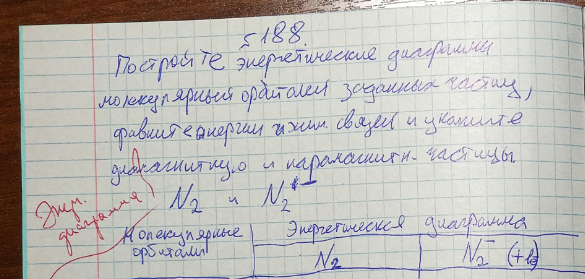 § 188
Постройте энергетические диаграммы
молекулярный орбиталей заданных частиц,
сравните энергии и хим. связей и укажите
диамагнитную и парамагнитн. частицы
N₂ и N₂⁻
Энер.
диаграмма
Молекулярные
орбитали
Энергетическая диаграмма
N₂
N₂⁻